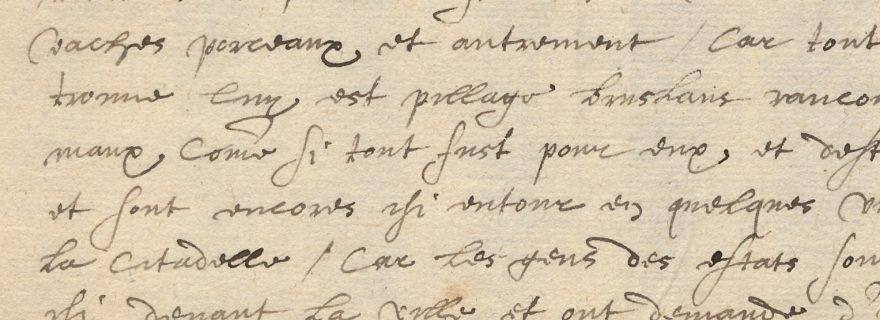 vaches porceaux et autrement / Car tout
tronne luy est pillage bruslans rancon
maux, Come si tout fust pour eux, et dest
et sont encores ichi entour en quelques vi
la Citadelle / Car les gens des estats son
ichi devant la ville et ont demande d